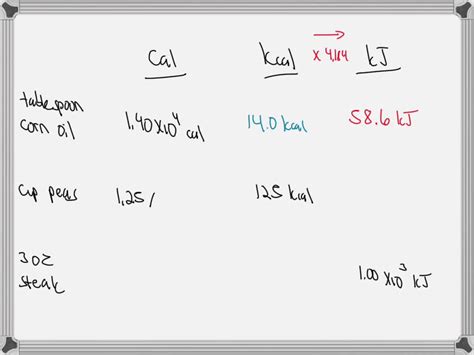 Cal kcal x 4.184 kJ
tablespoon
corn oil 1.40x10⁴ cal 14.0 kcal 58.6 kJ
cup pears 1.25 / 125 kcal
3 oz
steak 1.00 x10³ kJ